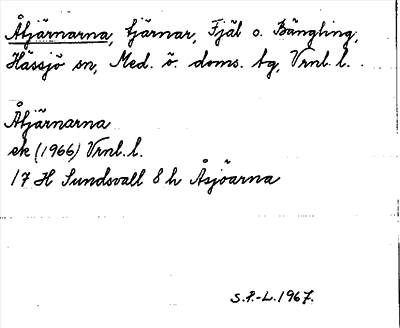 Åtjärnarna, tjärnar, Fjäl o. Bängling,
Hässjö sn, Med. ö. doms. tg, Vrnl. l.
Åtjärnarna
ek (1966) Vrnl. l.
17 H Sundsvall 8 h Åsjöarna
S.P.-L. 1967.